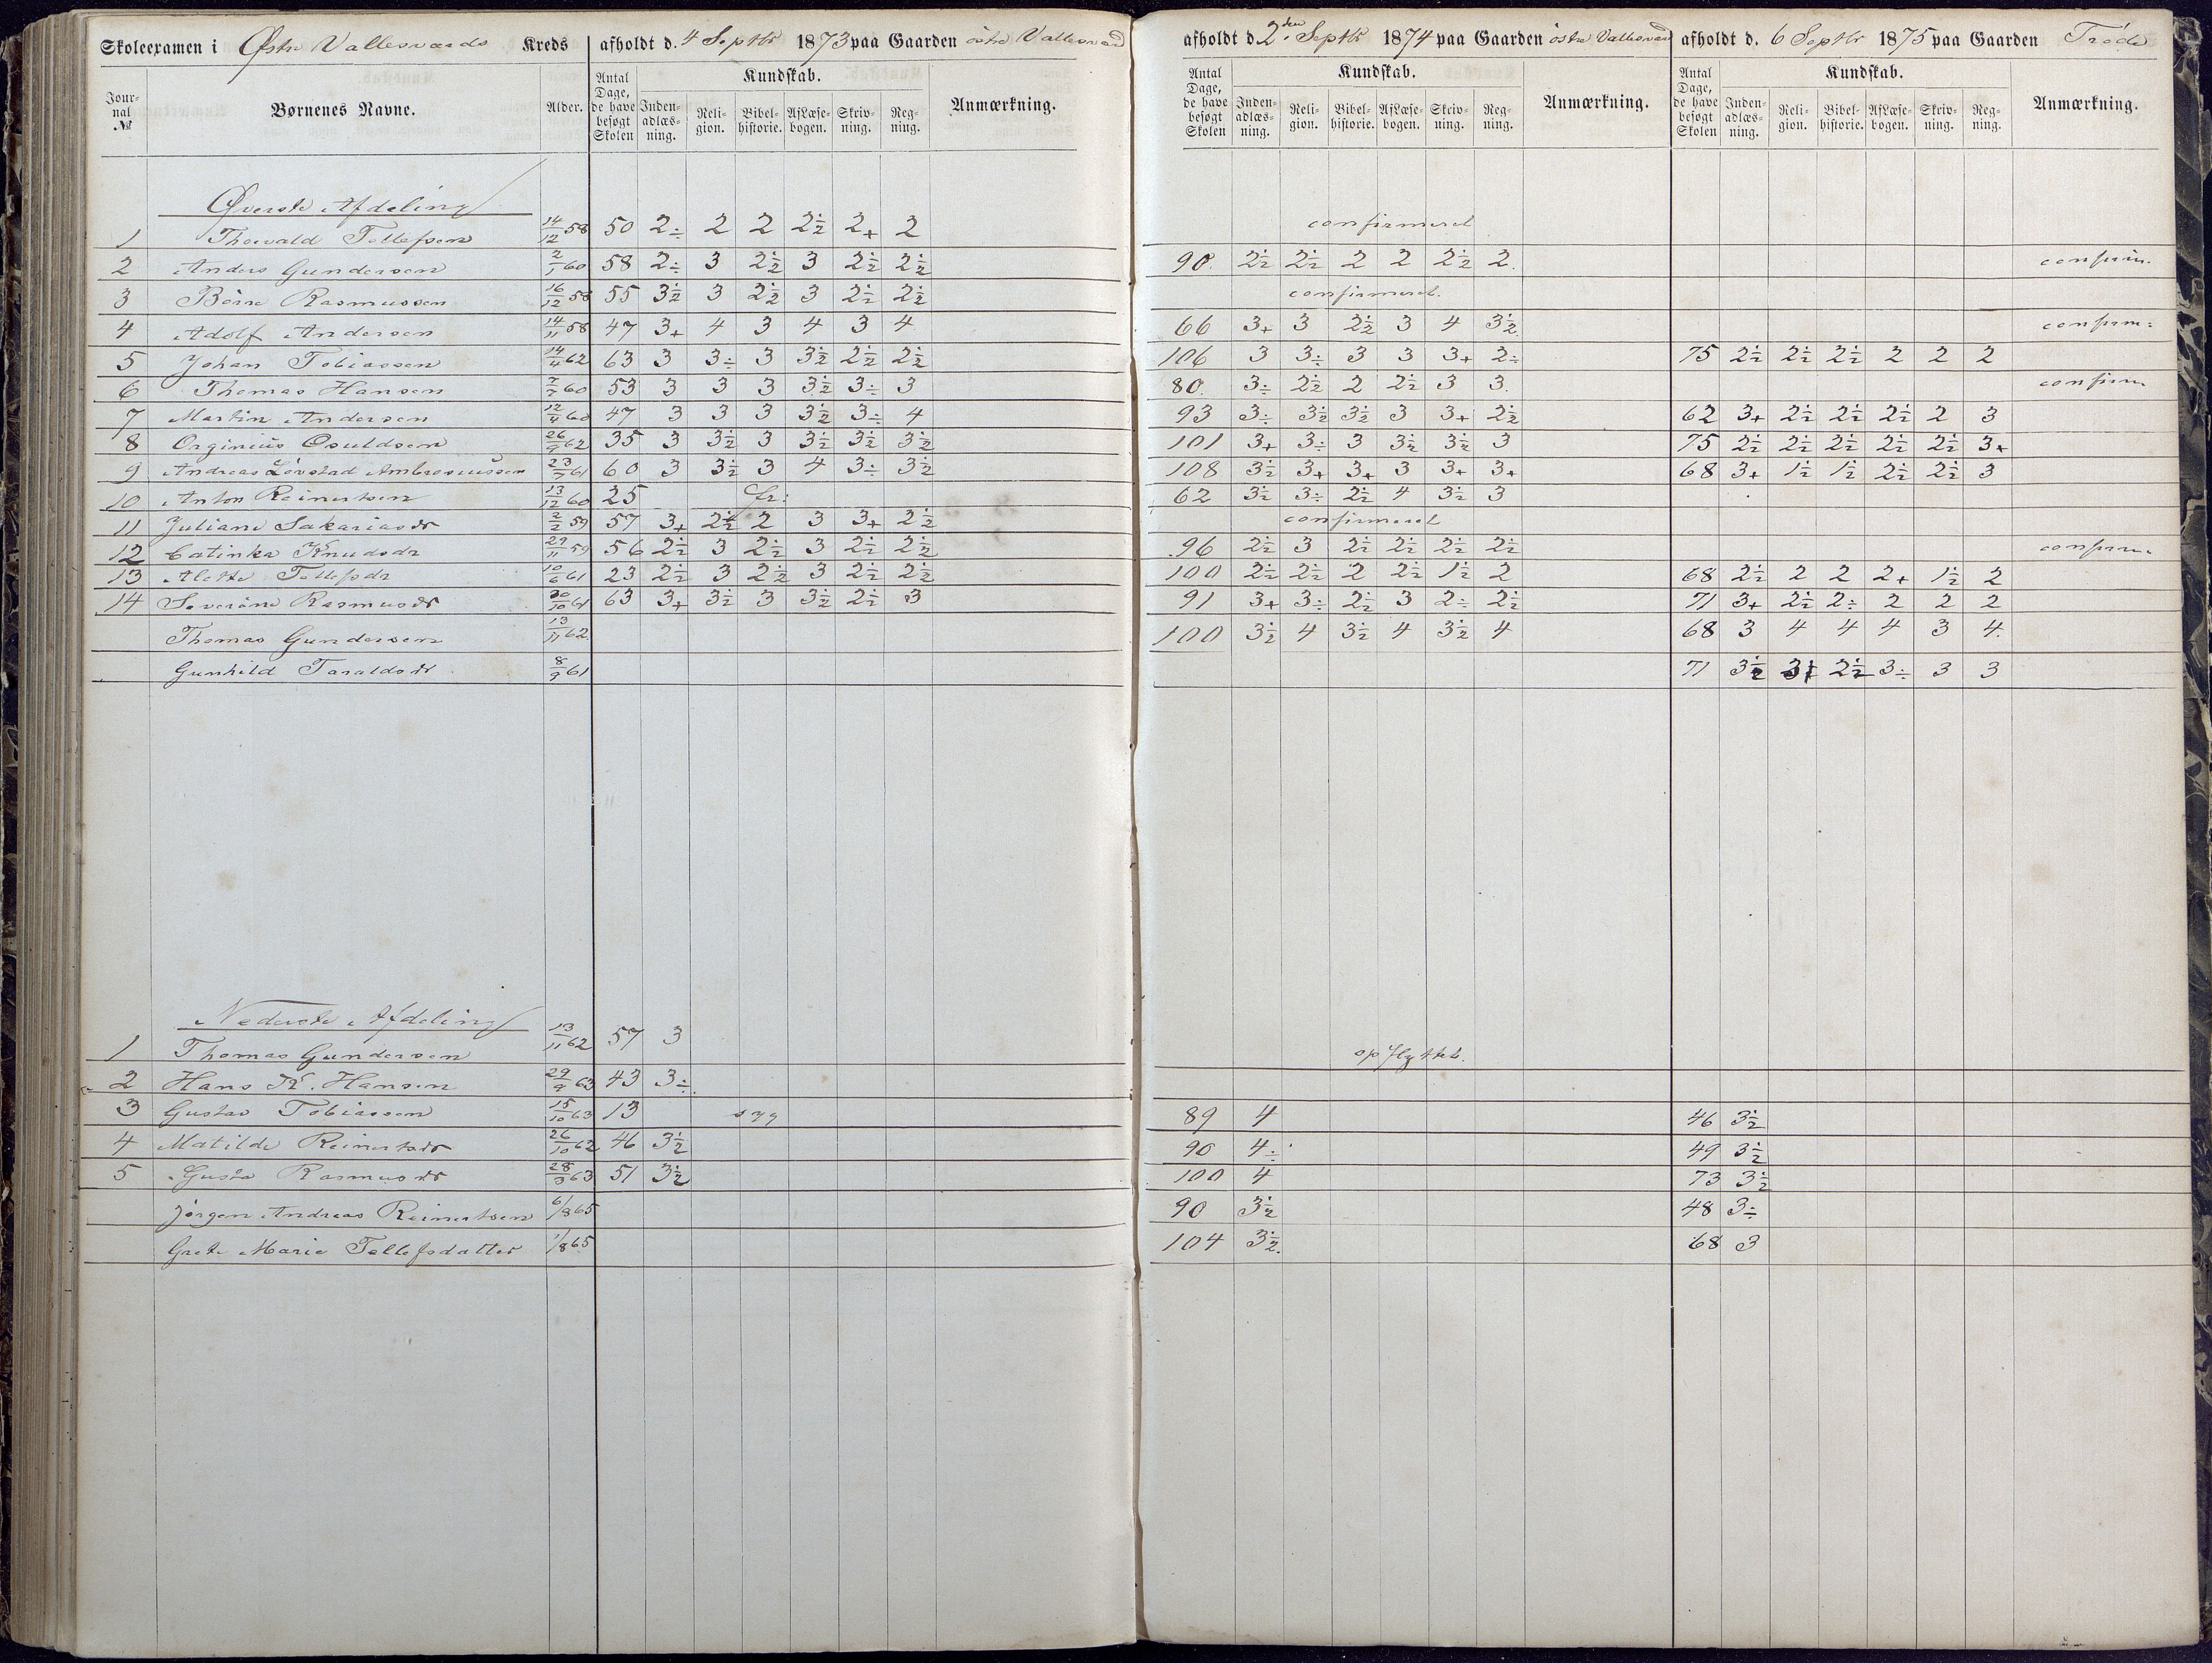 Skoleexamen i Østre Vallesværds Kreds afholdt d. 4 Septbr 1873 paa Gaarden östre Vallesværd afholdt d. 2den Septbr 1874 paa Gaarden östre Vallesværd afholdt d. 6 Septbr 1875 paa Gaarden
Jour-nal № Børnenes Navne. Alder. Antal Dage, de have besøgt Skolen Kundskab. Inden-adlæs-ning. Reli-gion. Bibel-historie. AfLæse-bogen. Skriv-ning. Reg-ning. Anmærkning. Antal Dage, de have besøgt Skolen Kundskab. Inden-adlæs-ning. Reli-gion. Bibel-historie. AfLæse-bogen. Skriv-ning. Reg-ning. Anmærkning. Antal Dage, de have besøgt Skolen Kundskab. Inden-adlæs-ning. Reli-gion. Bibel-historie. AfLæse-bogen. Skriv-ning. Reg-ning. Anmærkning.
Øverste Afdeling
1 Thorvald Tellefsen 14/12 58 50 2÷ 2 2 2½ 2+ 2 confirmeret
2 Anders Gundersen 2/1 60 58 2÷ 3 2½ 3 2½ 2½ 90 2½ 2½ 2 2 2½ 2 confirm.
3 Börre Rasmussen 16/12 58 55 3½ 3 2½ 3 2½ 2½ confirmeret.
4 Adolf Andersen 14/11 58 47 3+ 4 3 4 3 4 66 3+ 3 2½ 3 4 3½ confirm:
5 Johan Tobiassen 14/4 62 63 3 3÷ 3 3½ 2½ 2½ 106 3 3÷ 3 3 3+ 2÷ 75 2½ 2½ 2½ 2 2 2
6 Thomas Hansen 7/7 60 53 3 3 3 3½ 3÷ 3 80 3÷ 2½ 2 2½ 3 3 confirm
7 Martin Andersen 12/4 60 47 3 3 3 3½ 3÷ 4 93 3÷ 3½ 3½ 3 3+ 2½ 62 3+ 2½ 2½ 2½ 2 3
8 Orginius Osuldsen 26/9 62 35 3 3½ 3 3½ 3½ 3½ 101 3+ 3÷ 3 3½ 3½ 3 75 2½ 2½ 2½ 2½ 2½ 3+
9 Andreas Lövstad Ambrosiussen 23/7 61 60 3 3½ 3 4 3÷ 3½ 108 3½ 3+ 3+ 3 3+ 3+ 68 3+ 1½ 1½ 2½ 2½ 3
10 Anton Reinertsen 13/12 60 25 fr: 62 3½ 3÷ 2½ 4 3½ 3
11 Juliane Sakariasdr 2/2 59 57 3+ 2½ 2 3 3+ 2½ confirmeret
12 Catinka Knudsdr 29/11 59 56 2½ 3 2½ 3 2½ 2½ 96 2½ 3 2½ 2½ 2½ 2½ confirm.
13 Alette Tellefsdr 10/6 61 23 2½ 3 2½ 3 2½ 2½ 100 2½ 2½ 2 2½ 1½ 2 68 2½ 2 2 2+ 1½ 2
14 Severine Rasmusdr 30/10 61 63 3+ 3½ 3 3½ 2½ 3 91 3+ 3÷ 2½ 3 2÷ 2½ 71 3+ 2½ 2÷ 2 2 2
Thomas Gundersen 13/11 62 100 3½ 4 3½ 4 3½ 4 68 3 4 4 4 3 4
Gunhild Taraldsdr 8/9 61 71 3½ 3+ 2½ 3÷ 3 3
Nederste Afdeling
1 Thomas Gundersen 13/11 62 57 3 opflyttet.
2 Hans K. Hansen 29/9 63 43 3÷
3 Gustav Tobiassen 15/10 63 13 syg 89 4 46 3½
4 Matilde Reinertsdr 26/10 62 46 3½ 90 4÷ 49 3½
5 Gusta Rasmusdr 28/3 63 51 3½ 100 4 73 3½
Jörgen Andreas Reinertsen 6/8 65 90 3½ 48 3÷
Grete Marie Tellefsdatter 1/8 65 104 3½ 68 3